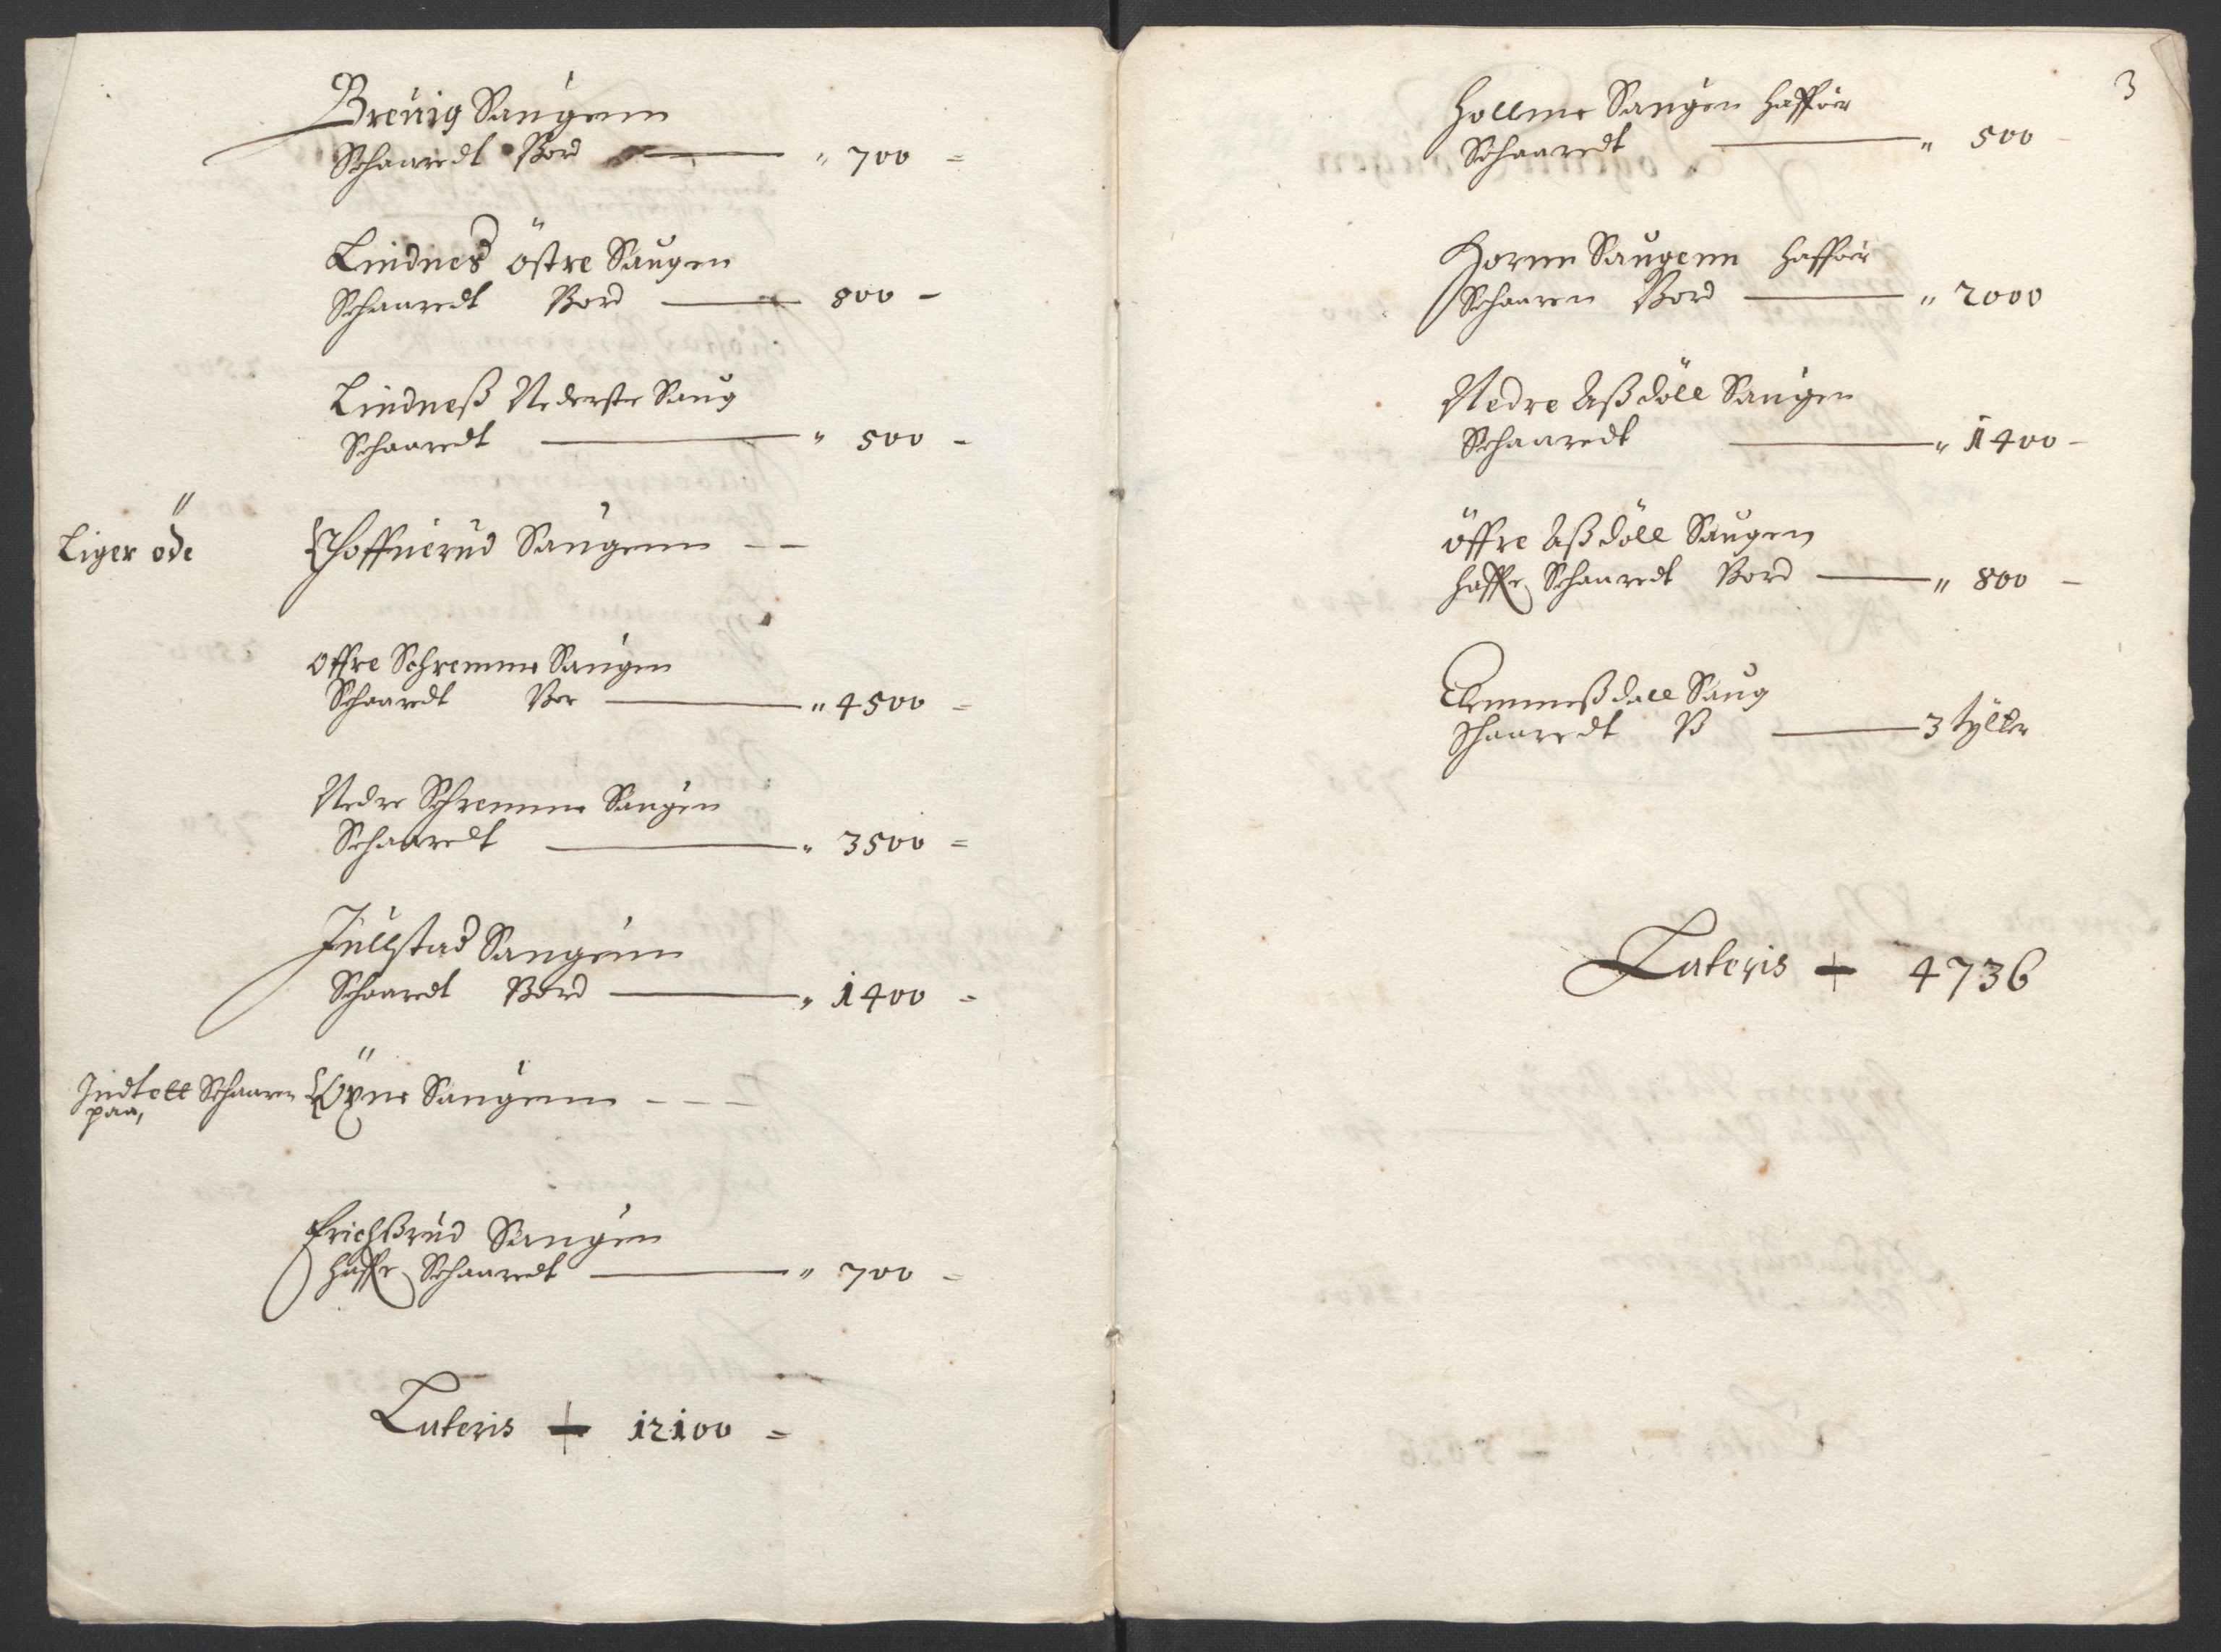 Breuig Saugenn
Schaaredt Bord " 700 =
Lindnes östre Saugen
Schaaredt Bord 800 -
Lindneß Nederste Saug
Schaaredt " 500 -
Liger öde
Hoffuerud Saugenn - -
Offre Schremme Saugen
Schaaredt Bor " 4500 =
Nedre Schremme Saugen
Schaaredt " 3500 =
Jullstad Saugenn
Schaaredt Bord " 1400 =
Indtett Schaaren
paa,
Öxne Saugenn - - -
Erichßrud Saugen
Haffr Schaaredt " 700 =
Lateris 12100 =
3
Hollme Saugen Haffuer
Schaaredt " 500 -
Horne Saugenn Haffuer
Schaaren Bord " 2000
Nedre Aßdöll Saugen
Schaaredt " 1400 -
öffre Aßdöll Saugen
Haffr Schaaredt Bord " 800 -
Schaaredt B 3 tylter
Lateris 4736